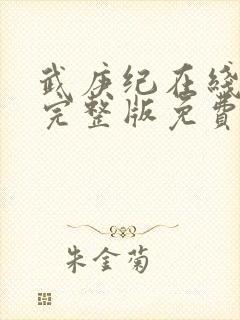 武庚纪在线
完整版免費
朱金菊